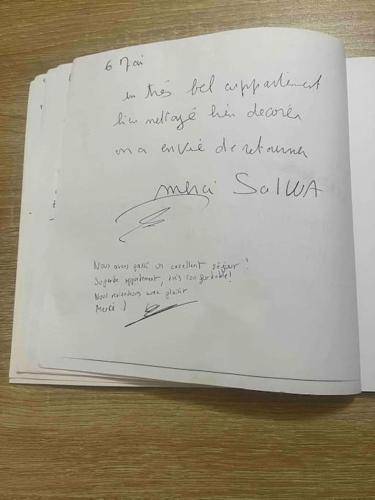 6 Mai
un très bel appartement
bien nettoyé bien decorér
on a envie de retourner
merci SalWA
Nous avons passé un excellent séjour !
Superbe appartement, très confortable !
Nous reviendrons avec plaisir
Merci :)